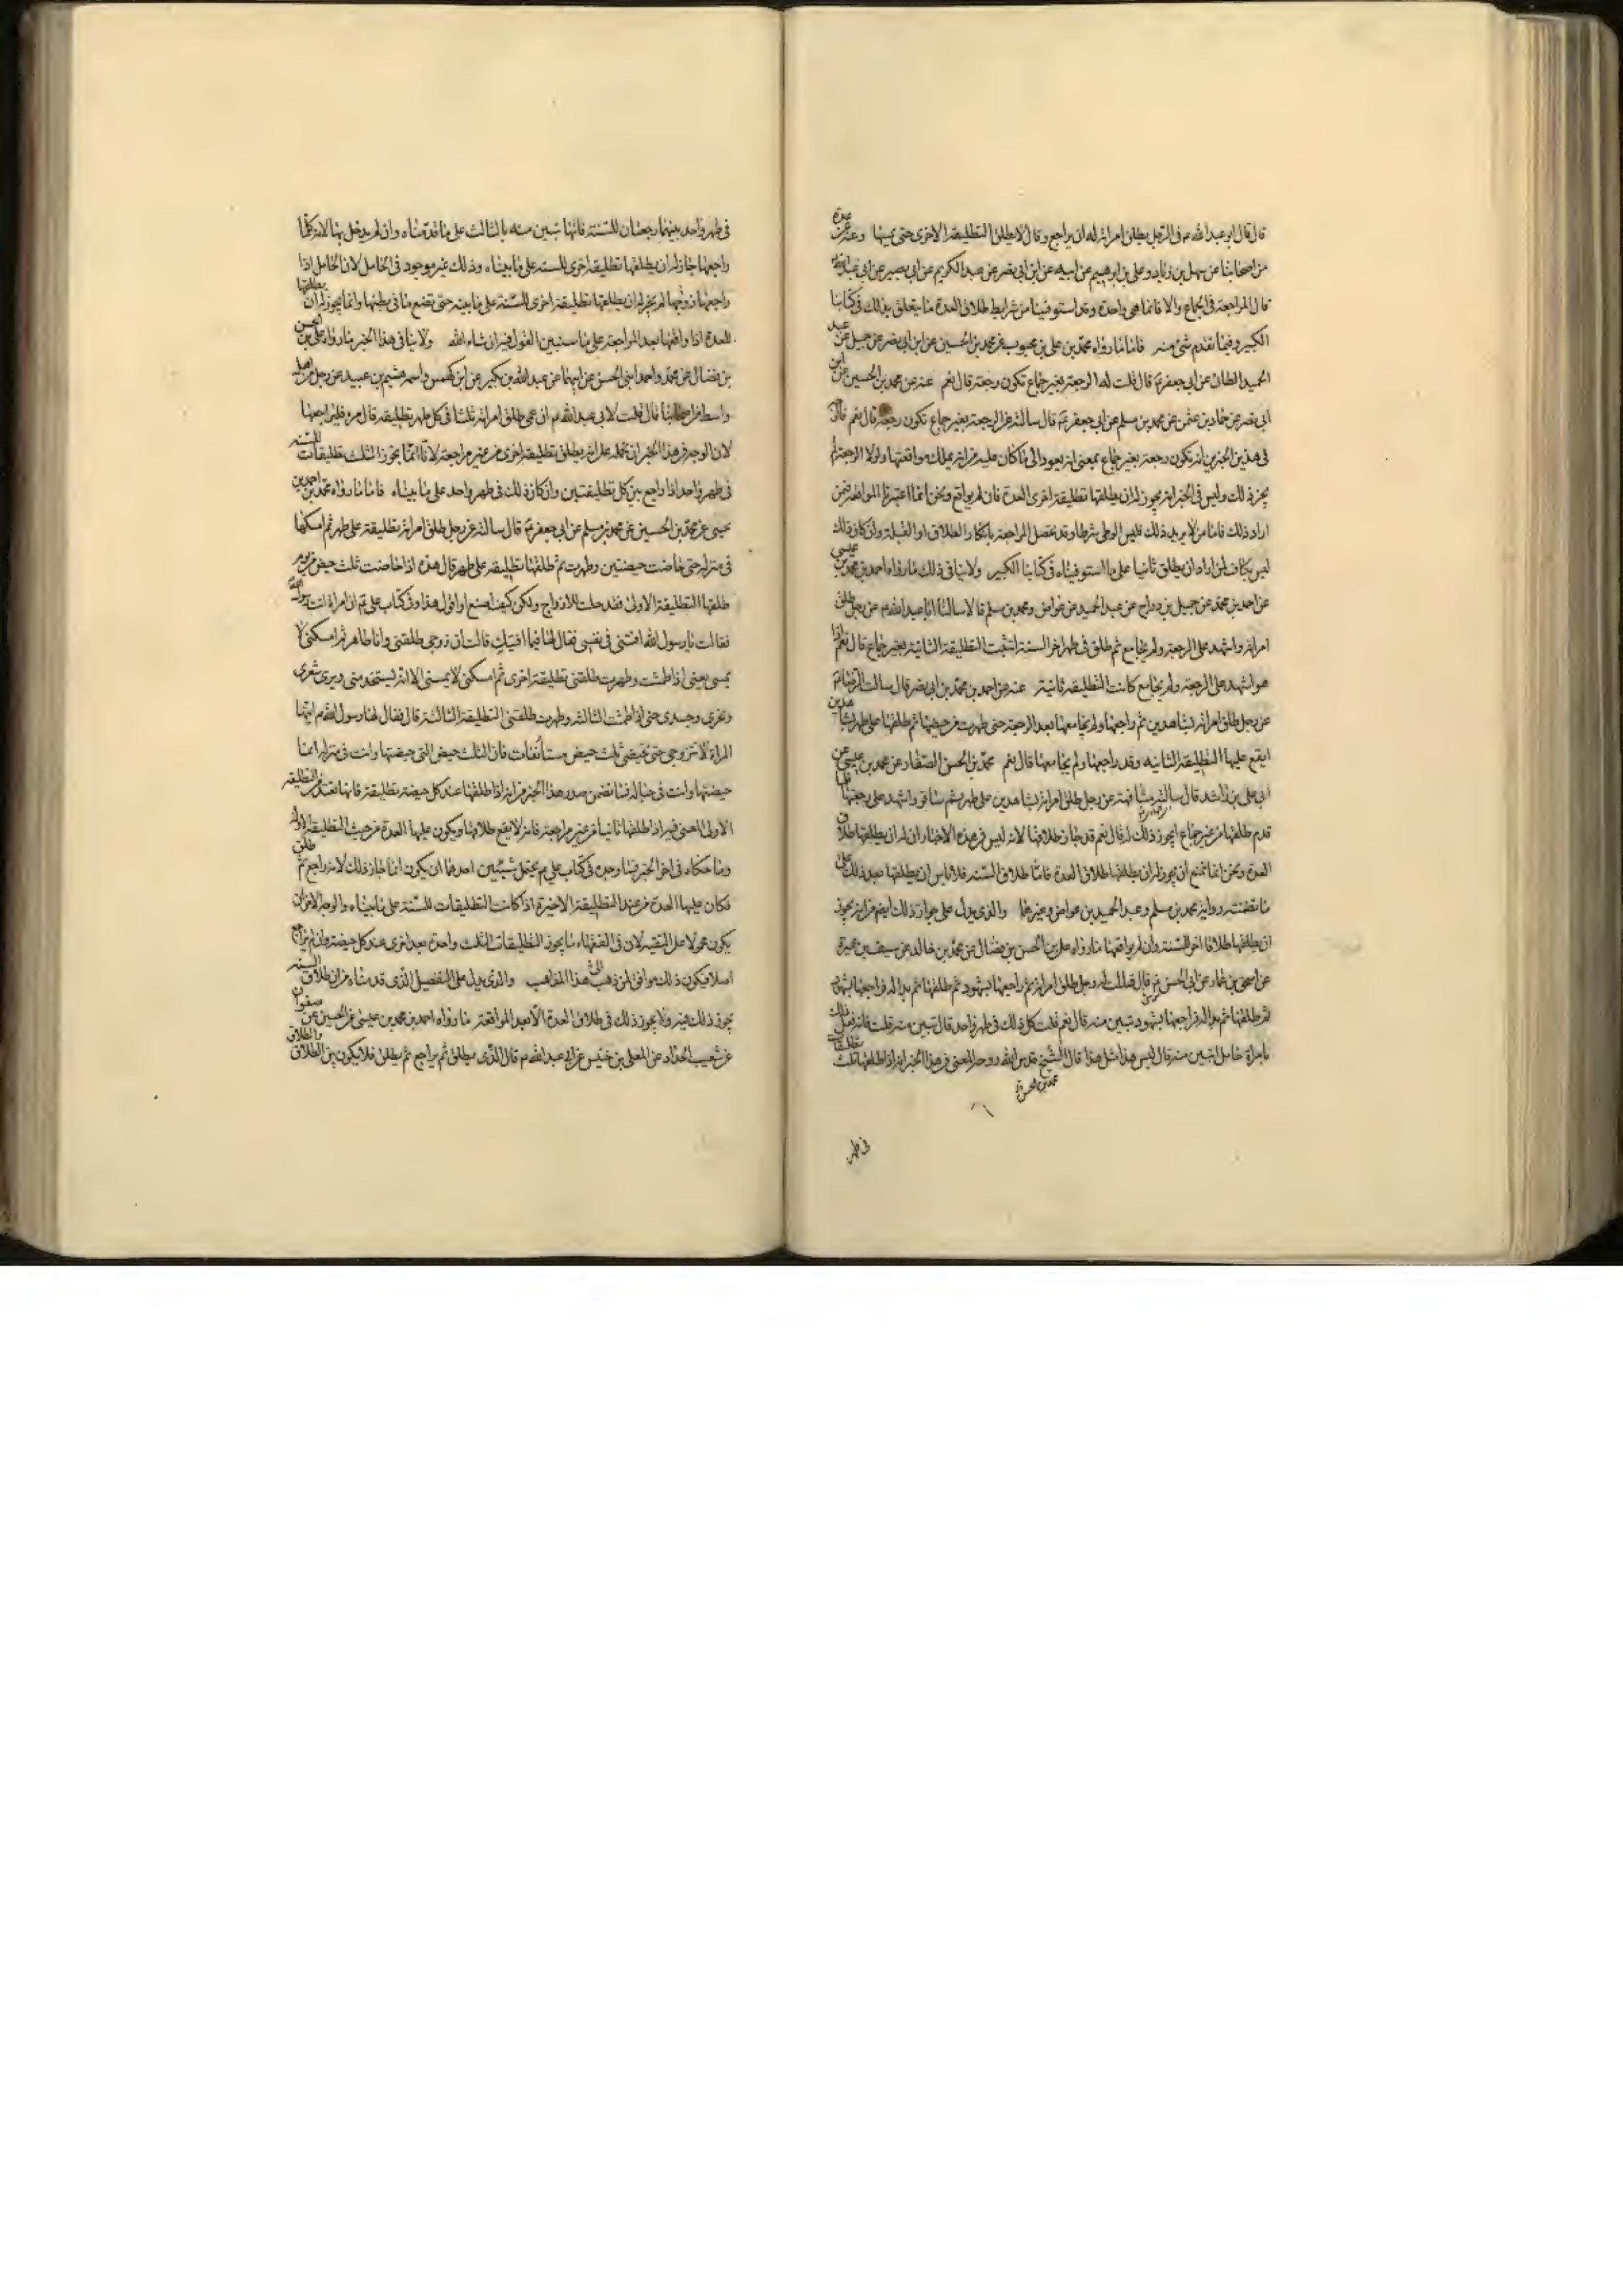 قال قال ابو عبد الله ع فى الرجل يطلق امراته له ان يراجع وقال لا يطلق التطليقة الاخرى حتى يمسها وعنه عن عدة
من اصحابنا عن سهل بن زياد وعلى بن ابرهيم عن ابيه عن ابن ابى نصر عن عبد الكريم عن ابى بصير عن ابى عبد الله
قال المراجعة فى الجماع والا فانما هى واحدة وقد استوفينا من شرايط طلاق العدة ما يتعلق بذلك فى كتابنا
الكبير وفيما تقدم شئ منه فاما ما رواه محمد بن على بن محبوب عن محمد بن الحسين عن ابن ابى نصر عن جميل عن عبد
الحميد الطائى عن ابى جعفر ع قال قلت له الرجعة بغير جماع تكون رجعة قال نعم عنه عن محمد بن الحسين عن ابن
ابى نصر عن حماد بن عثمن عن محمد بن مسلم عن ابى جعفر ع قال سالته عن الرجعة بغير جماع تكون رجعة قال نعم
فى هذين الخبرين انه تكون رجعة بغير جماع بمعنى انه يعود الى ما كان عليه من انه يملك مواقعتها ولولا الرجعة لم
يجز ذلك وليس فى الخبر انه يجوز له ان يطلقها تطليقة اخرى العدة فان لم يواقع ونحن انما اعتبرنا المواقعة فيمن
اراد ذلك فاما من لا يريد ذلك فليس الوطى شرطا وقد تحصل المراجعة بانكار الطلاق او القبلة وان كان ذلك
ليس بكاف لمن اراد ان يطلق ثانيا على ما استوفيناه فى كتابنا الكبير ولا ينافى ذلك ما رواه احمد بن محمد بن عيسى
عن احمد بن محمد عن جميل بن دراج عن عبد الحميد بن عواض ومحمد بن مسلم قالا سالنا ابا عبد الله ع عن رجل طلق
امراته واشهد على الرجعة ولم يجامع ثم طلق فى طهر اخر السنة اتثبت التطليقة الثانية بغير جماع قال نعم اذا
هو اشهد على الرجعة ولم يجامع كانت التطليقة ثانية عنه عن احمد بن محمد بن ابى نصر قال سالت الرضا ع
عن رجل طلق امراته بشاهدين ثم راجعها ولم يجامعها بعد الرجعة حتى طهرت من حيضها ثم طلقها على طهر بشاهدين
ايقع عليها التطليقة الثانيه وقد راجعها ولم يجامعها قال نعم محمد بن الحسن الصفار عن محمد بن عيسى عن
ابى على بن راشد قال سالته مشافهة عن رجل طلق امراته بشاهدين على طهر ثم سافر واشهد على رجعتها
قدم طلقها من غير جماع ايجوز ذلك له قال نعم قد جاز طلاقها لانه ليس فى هذه الاخبار ان له ان يطلقها طلاق
العدة ونحن انما نمنع ان يجوز له ان يطلقها طلاق العدة فاما طلاق السنة فلا باس ان يطلقها بعد ذلك على
ما تضمنته رواية محمد بن مسلم وعبد الحميد بن عواض وغيرهما والذى يدل على جواز ذلك ايضا من انه يجوز
ان يطلقها طلاقا اخر للسنة وان لم يواقعها ما رواه على بن الحسن بن فضال عن محمد بن خالد عن سيف بن عميرة
عن اسحق بن عمار عن ابى الحسن ع قال قلت له رجل طلق امراته ثم راجعها بشهود ثم طلقها ثم بدا له فراجعها بشهود
ثم طلقها ثم بدا له فراجعها بشهود تبين منه قال نعم قلت كل ذلك فى طهر واحد قال تبين منه قلت فانه فعل ذلك
بامراة حامل اتبين منه قال ليس هذا مثل هذا قال الشيخ قدس الله روحه المعنى فى هذا الخبر انه اذا طلقها ثلث تطليقات
محمد بن الحسن
فى طهر
فى طهر واحد بينهما رجعتان للسنة فانها تبين منه بالثالث على ما قدمناه وان لم يدخل بها لانه كلما
راجعها جاز له ان يطلقها تطليقة اخرى للسنة على ما بيناه وذلك غير موجود فى الحامل لان الحامل اذا
راجعها زوجها لم يجز له ان يطلقها تطليقة اخرى للسنة على ما بينه حتى تضع ما فى بطنها وانما يجوز له ان يطلقها
للعدة اذا واقعها بعد المراجعة على ما سنبين القول فيه ان شاء الله ولا ينافى هذا الخبر ما رواه على بن الحسن
بن فضال عن محمد واحمد ابنى الحسن عن ابيهما عن عبد الله بن بكير عن ابن كهمس واسمه هيثم بن عبيد عن رجل من اهل
واسط من اصحابنا قال قلت لابى عبد الله ع ان عمى طلق امراته ثلثا فى كل طهر تطليقة قال مره فليراجعها
لان الوجه فى هذا الخبر ان نحمله على انه يطلق تطليقة اخرى من غير مراجعة لانا انما نجوز الثلث تطليقات للسنة
فى طهر واحد اذا راجع بين كل تطليقتين وان كان ذلك فى طهر واحد على ما بيناه فاما ما رواه محمد بن احمد بن
يحيى عن محمد بن الحسين عن محمد بن مسلم عن ابى جعفر ع قال سالته عن رجل طلق امراته تطليقة على طهر ثم امسكها
فى منزله حتى حاضت حيضتين وطهرت ثم طلقها تطليقة على طهر قال هذه اذا حاضت ثلث حيض من يوم
طلقها التطليقة الاولى فقد حلت للازواج ولكن كيف اصنع او اقول هذا وفى كتاب على ع ان امراة اتت رسول الله
فقالت يا رسول الله افتنى فى نفسى فقال لها فيما افتيك قالت ان زوجى طلقنى وانا طاهر ثم امسكنى لا
يمسنى يعنى اذا طمثت وطهرت طلقنى تطليقة اخرى ثم امسكنى لا يمسنى الا انه يستخدمنى ويرى شعرى
ونحرى وجسدى حتى اذا طمثت الثالثة وطهرت طلقنى التطليقة الثالثة قال فقال لها رسول الله ص ايتها
المراة لا تتزوجى حتى تحيضى ثلث حيض مستأنفات فان الثلث حيض التى حيضتها وانت فى منزله انما
حيضتها وانت فى حباله فما تضمن صدر هذا الخبر من انه اذا طلقها عند كل حيضة تطليقة فانها تعتد من التطليقة
الاولى المعنى فيه اذا طلقها ثانيا من غير مراجعة فانه لا يقع طلاقها ويكون عليها العدة من حيث التطليقة الاولى
وما حكاه فى اخر الخبر بما وجده فى كتاب على ع يحتمل شيئين احدهما ان يكون انما جاز ذلك لانه راجع ثم طلق
فكان عليها العدة من عند التطليقة الاخيرة اذا كانت التطليقات للسنة على ما بيناه والوجه الاخر ان
يكون محمولا على التقية لان فى الفقهاء من يجوز التطليقات الثلث واحدة بعد اخرى عند كل حيضة وان لم يراجع
اصلا فيكون ذلك موافقا لمن ذهب الى هذا المذاهب والذى يدل على التفصيل الذى قدمناه من ان طلاق السنة
يجوز ذلك فيه ولا يجوز ذلك فى طلاق العدة الا بعد المواقعة ما رواه احمد بن محمد بن عيسى عن الحسين عن صفوان
عن شعيب الحداد عن المعلى بن خنيس عن ابى عبد الله ع قال الذى يطلق ثم يراجع ثم يطلق فلا يكون بين الطلاق والطلاق